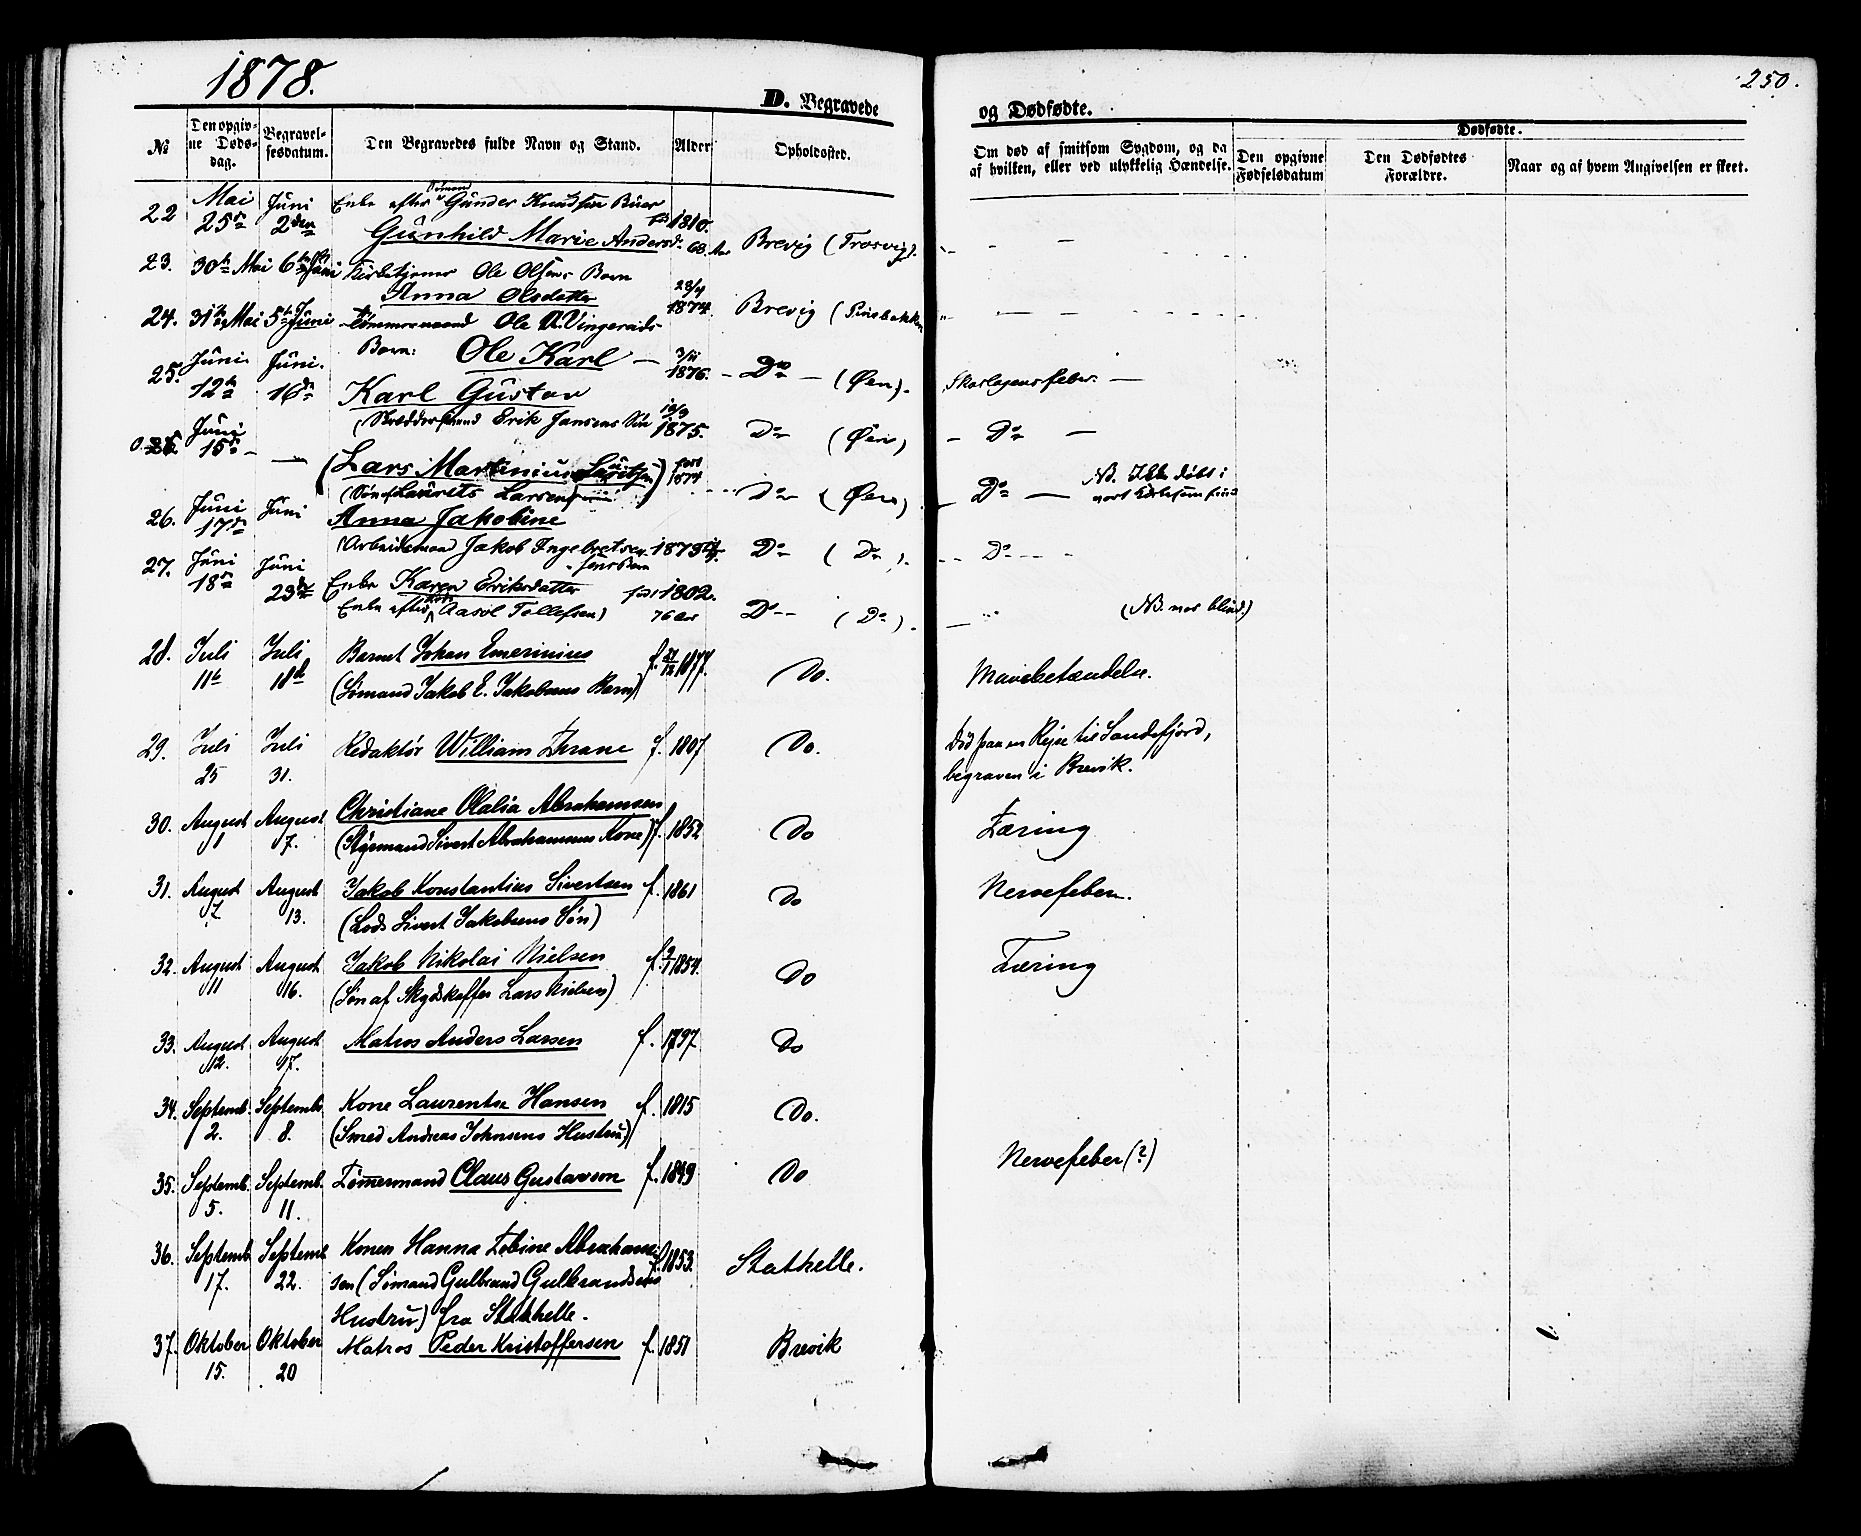 1878.
250.
D. Begravede
og Dødfødte.
№
Den opgivne Døds-dag.
Begravelsesdatum.
Den Begravedes fulde Navn og Stand.
Alder
Opholdssted.
Om død af smitsom Sygdom, og da af hvilken, eller ved ulykkelig Hændelse.
Dødfødte.
Den opgivne Fødselsdatum
Den Dødfødtes Forældre.
Naar og af hvem Angivelsen er skeet.
22 Mai Juni Enke efter Sømand Gunder Knudsen Buer
25de 2den Gunhild Marie Andersd. 1810. 68 Aar Brevig (Trosvig).
23. 30te Mai 6te Juni Kirketjener Ole Olsens Barn
Anna Olsdatter 23/4 1874. Brevig (
24. 31te Mai 5te Juni Tømmermand Ole A. Vingereids
Barn: Ole Karl 3/11 1876. Do (Øen). Skarlagensfeber.
25. Juni Juni.
12te 16de Karl Gustav
(Skrædder Erik Jansens Søn 1875. Do (Øen) Do
Juni
15de (Lars Martinius Lauritsen) født 1874
(Søn af Laurits Larsen) Do (Øen) Do NB. Ikke døbt i
26. Juni Juni Anna Jakobine
17de (Arbeidsmand Jakob Ingebretsen 1873 Do (Do). Do
27. Juni Juni
18de 23de Enke Karen Eriksdatter født 1802.
Enke efter Aasol Tollefsen) 76 Aar Do (Do). (NB. var blind.)
28. Juli Juli Barnet Johan Emerinius f. 21/12 1877.
11te 18de (Sømand Jakob E. Jakobsens Barn) Do. Mavebetændelse.
29. Juli Juli Redaktør William Thrane f. 1807 Do. Død paa en Rejse til Sandefjord,
25 31. begraven i Brevik.
30. August August Christiane Olalia Abrahamsen
1 7. (Styrmand Sivert Abrahamsens Kone) f. 1852 Do Tæring
31. August August Jakob Konstantius Sivertsen f. 1861 Do Nervefeber.
7. 13. (Lods Sivert Jakobsens Søn)
32. August August Jakob Nikolai Nielsen f. 1854. Do Tæring
11 16. (Søn af Skydskaffer Lars Nielsen)
33. August August Matros Anders Larsen f. 1797 Do
12. 17.
34. Septemb. Septemb. Kone Laurentse Hansen f. 1815 Do.
2. 8. (Smed Andreas Johnsens Hustru)
35. Septemb. Septemb. Tømermand Claus Gustavson f. 1849 Do Nervefeber (?)
5. 11.
36. Septemb. Septemb. Konen Hanna Tobine Abraham-
17. 22. sen (Sømand Gulbrand Gulbrandsens f. 1853. Stathelle.
Hustru) fra Stathelle.
37. Oktober Oktober Matros Peder Kristoffersen f. 1851 Brevik
15. 20